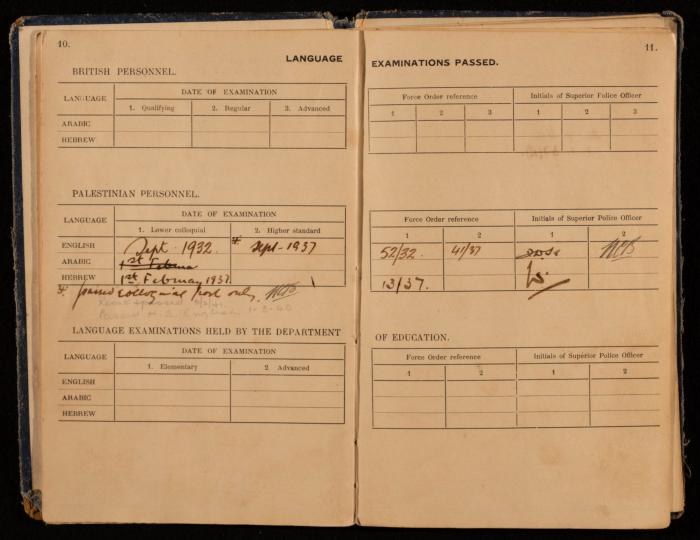 10.
LANGUAGE
BRITISH PERSONNEL.
LANGUAGE DATE OF EXAMINATION
1. Qualifying 2. Regular 3. Advanced
ARABIC
HEBREW
PALESTINIAN PERSONNEL.
LANGUAGE DATE OF EXAMINATION
1. Lower colloquial 2. Higher standard
ENGLISH Sept. 1932. Sept-1937
ARABIC 1st
HEBREW 1st February 1937.
passed colloquial part only.
1-3-40
LANGUAGE EXAMINATIONS HELD BY THE DEPARTMENT
LANGUAGE DATE OF EXAMINATION
1. Elementary 2 Advanced
ENGLISH
ARABIC
HEBREW
11.
EXAMINATIONS PASSED.
Force Order reference Initials of Superior Police Officer
1 2 3 1 2 3
Force Order reference Initials of Superior Police Officer
1 2 1 2
52/32. 41/37
13/37.
OF EDUCATION.
Force Order reference Initials of Superior Police Officer
1 2 1 2